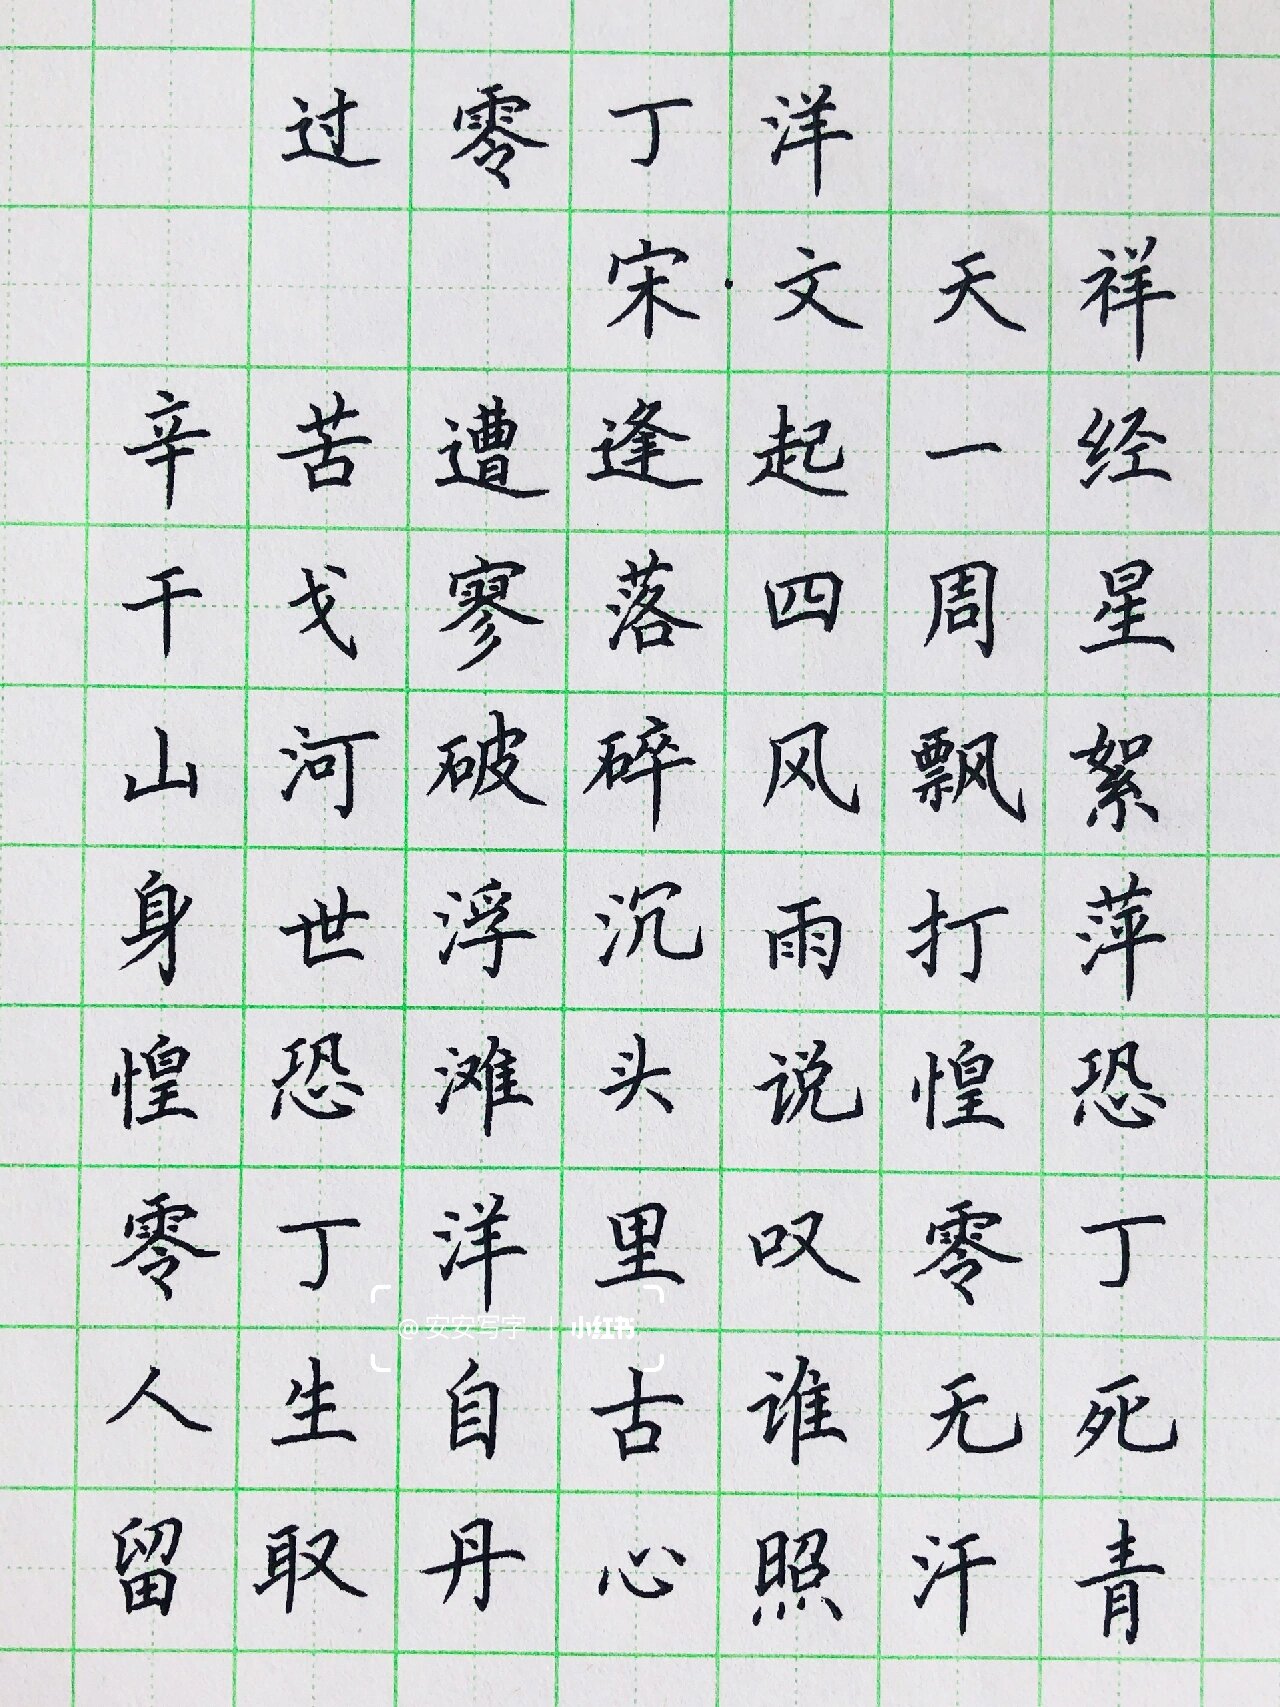 过零丁洋
宋·文天祥
辛苦遭逢起一经
干戈寥落四周星
山河破碎风飘絮
身世浮沉雨打萍
惶恐滩头说惶恐
零丁洋里叹零丁
@安安写字 | 小红书
人生自古谁无死
留取丹心照汗青